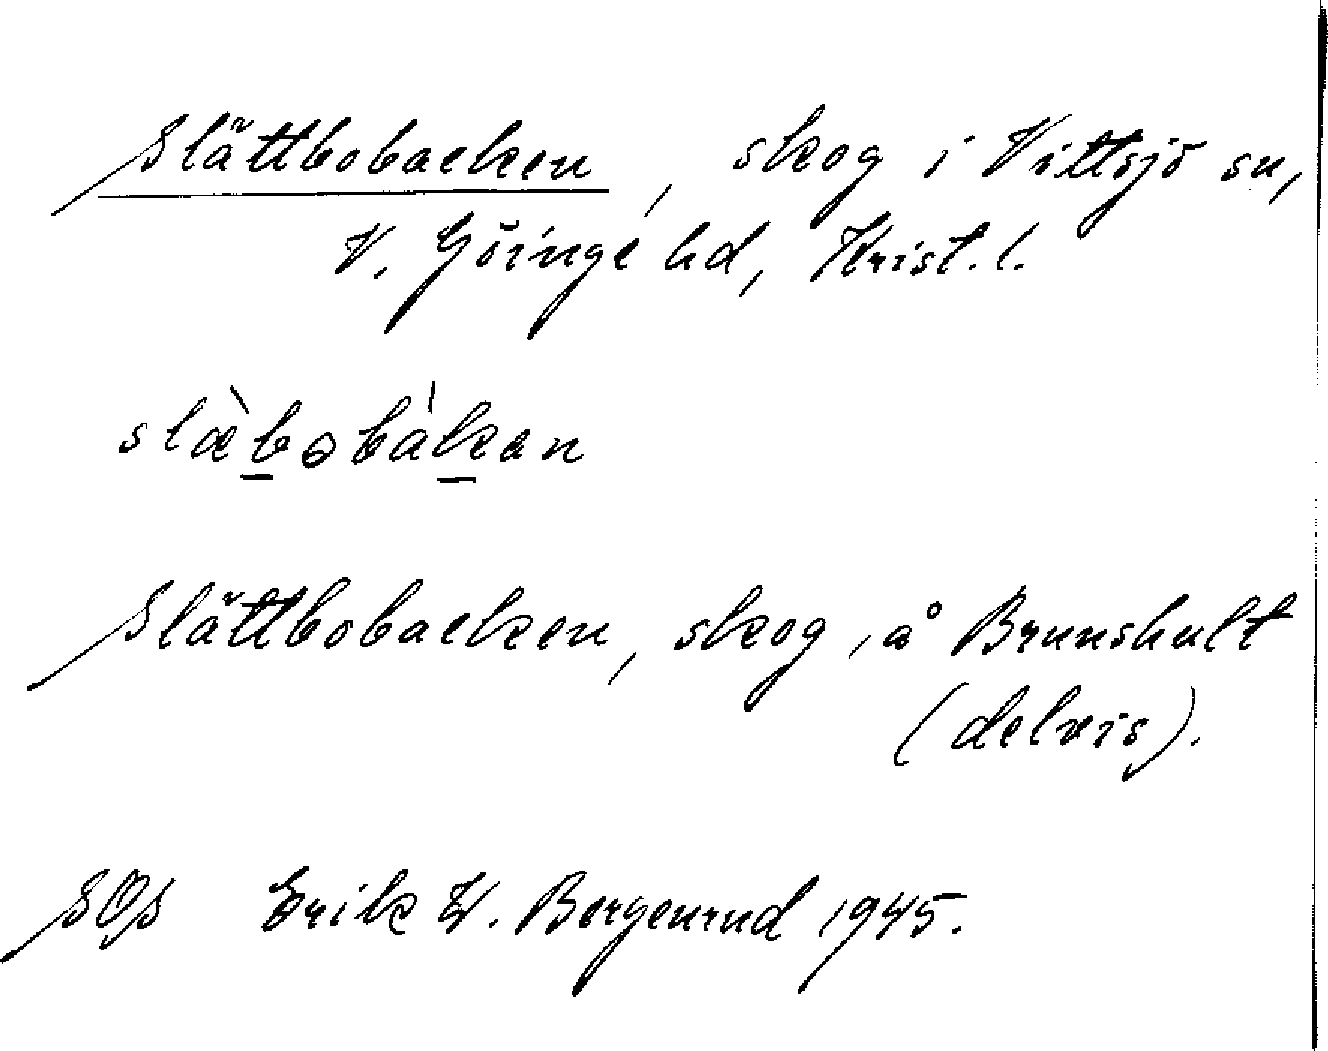 Slättbobacken, skog i Vittsjö sn,
V. Göinge hd, Krist. l.
slæ̀b̲obák̲ən
Slättbobacken, skog, å Brunshult
(delvis).
SOS Erik W. Bergenrud 1945.